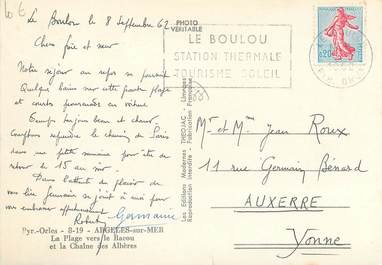 Le Boulou le 8 Septembre 62
Chers frère et sœur
Notre séjour au repos se poursuit
Quelques bains sur cette petite plage
et courtes promenades en voiture
Temps toujours beau et chaud
reprendre le chemin de Paris
dans une petite semaine pour être de
retour le 15 au
Dans l'attente du plaisir de
vous lire Germaine se joint à moi pour
vous embrasser affectueusement
Robert Germaine
Pyr.-Orles - 8-19 - ARGELES-sur-MER
La Plage vers le Racou
et la Chaîne des Albères
PHOTO
VERITABLE
Les Editions Modernes "THEOJAC" - Limoges
Reproduction Interdite - Fabrication Française
LE BOULOU
STATION THERMALE
TOURISME SOLEIL
0,20
Mr et Mme Jean Roux
11 rue Germain Bénard
AUXERRE
Yonne